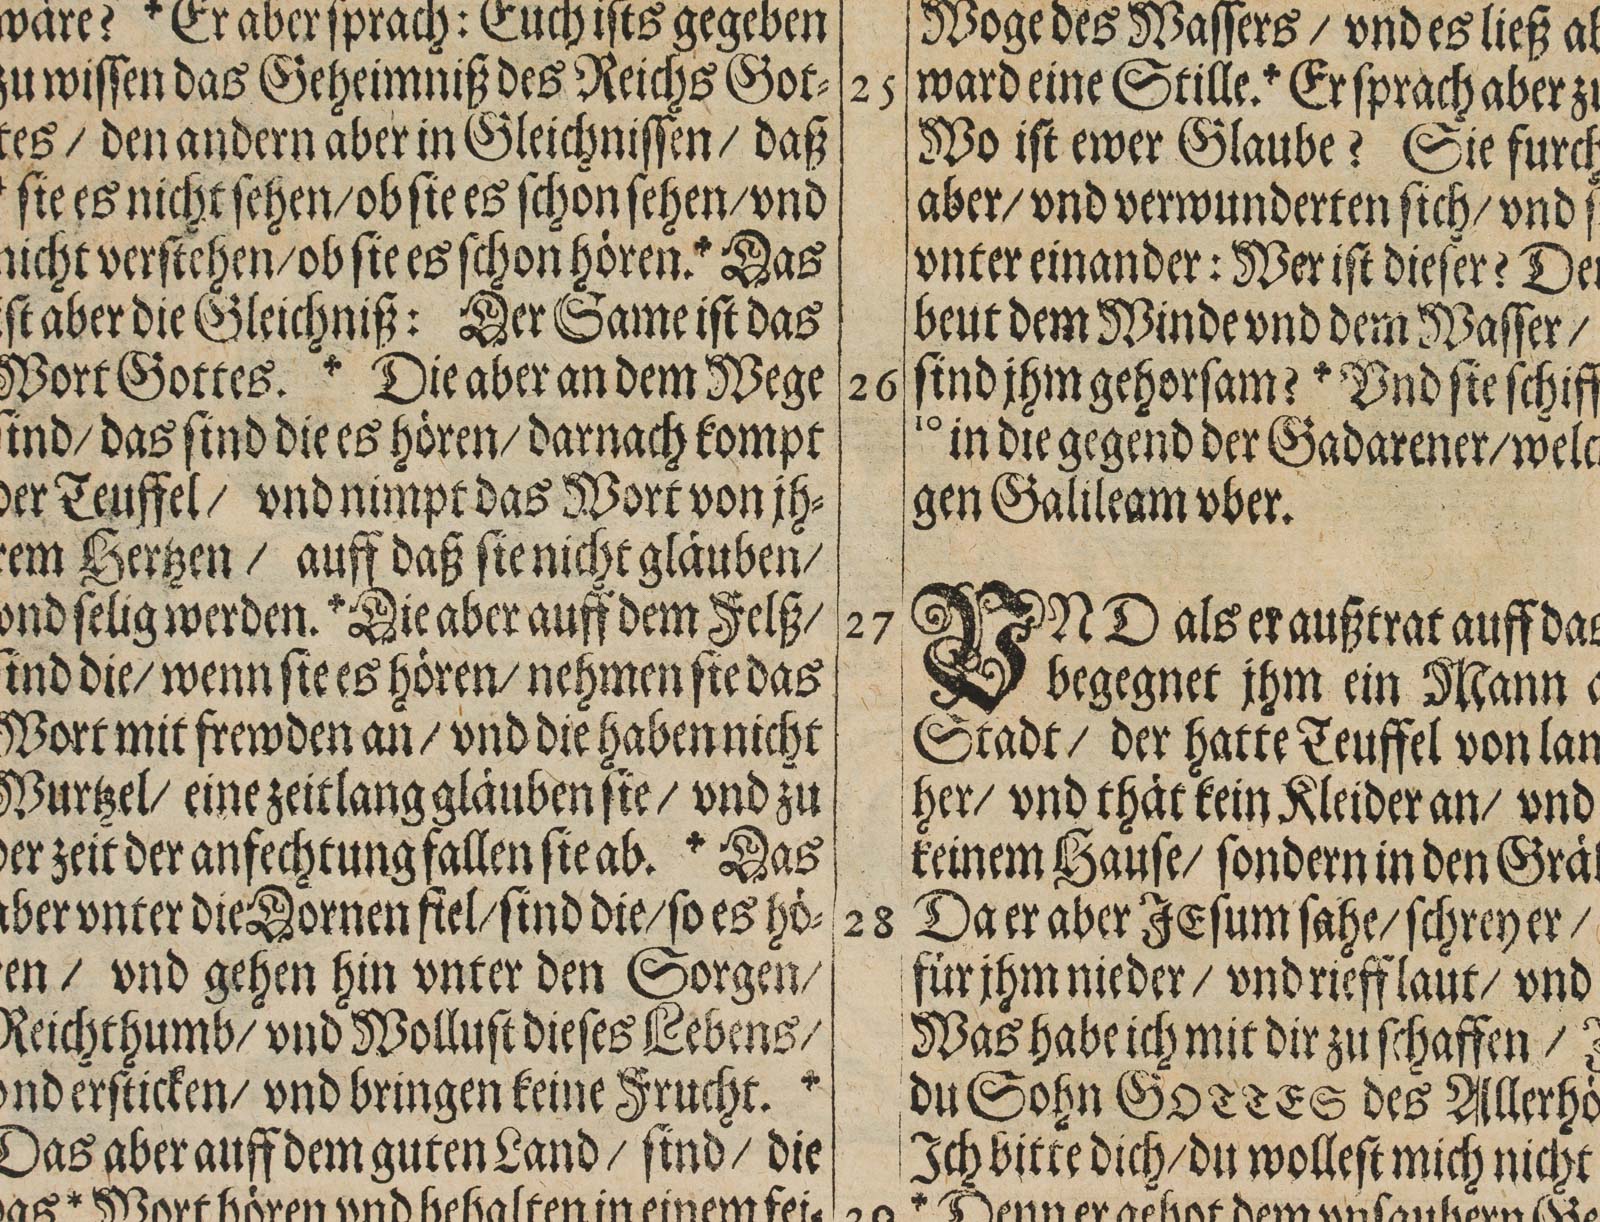 wäre? * Er aber sprach: Euch ists gegeben
zu wissen das Geheimniß des Reichs Got-
tes / den andern aber in Gleichnissen / daß
* sie es nicht sehen/ ob sie es schon sehen/ vnd
nicht verstehen/ ob sie es schon hören. * Das
ist aber die Gleichniß: Der Same ist das
Wort Gottes. * Die aber an dem Wege
sind/ das sind die es hören/ darnach kompt
der Teuffel / vnd nimpt das Wort von jh-
rem Hertzen / auff daß sie nicht gläuben/
vnd selig werden. * Die aber auff dem Felß/
sind die/ wenn sie es hören/ nehmen sie das
Wort mit frewden an / vnd die haben nicht
Wurtzel/ eine zeitlang gläuben sie / vnd zu
der zeit der anfechtung fallen sie ab. * Das
aber vnter die Dornen fiel/ sind die/ so es hö-
ren / vnd gehen hin vnter den Sorgen/
Reichthumb/ vnd Wollust dieses Lebens/
vnd ersticken/ vnd bringen keine Frucht. *
Das aber auff dem guten Land / sind / die
das * Wort hören vnd behalten in einem fei-
Woge des Wassers / vnd es ließ ab
25 ward eine Stille. * Er sprach aber zu
Wo ist ewer Glaube? Sie furch
aber/ vnd verwunderten sich/ vnd s
vnter einander: Wer ist dieser? Den
beut dem Winde vnd dem Wasser /
26 sind jhm gehorsam? * Vnd sie schiff
10 in die gegend der Gadarener/ welc
gen Galileam vber.
27 VND als er außtrat auff das
begegnet jhm ein Mann a
Stadt / der hatte Teuffel von lan
her/ vnd thät kein Kleider an/ vnd
keinem Hause/ sondern in den Gräb
28 Da er aber JEsum sahe/ schrey er /
für jhm nieder / vnd rieff laut/ vnd
Was habe ich mit dir zu schaffen / J
du Sohn GOTTES des Allerhö
Ich bitte dich/ du wollest mich nicht
29 * Denn er gebot dem vnsaubern Ge